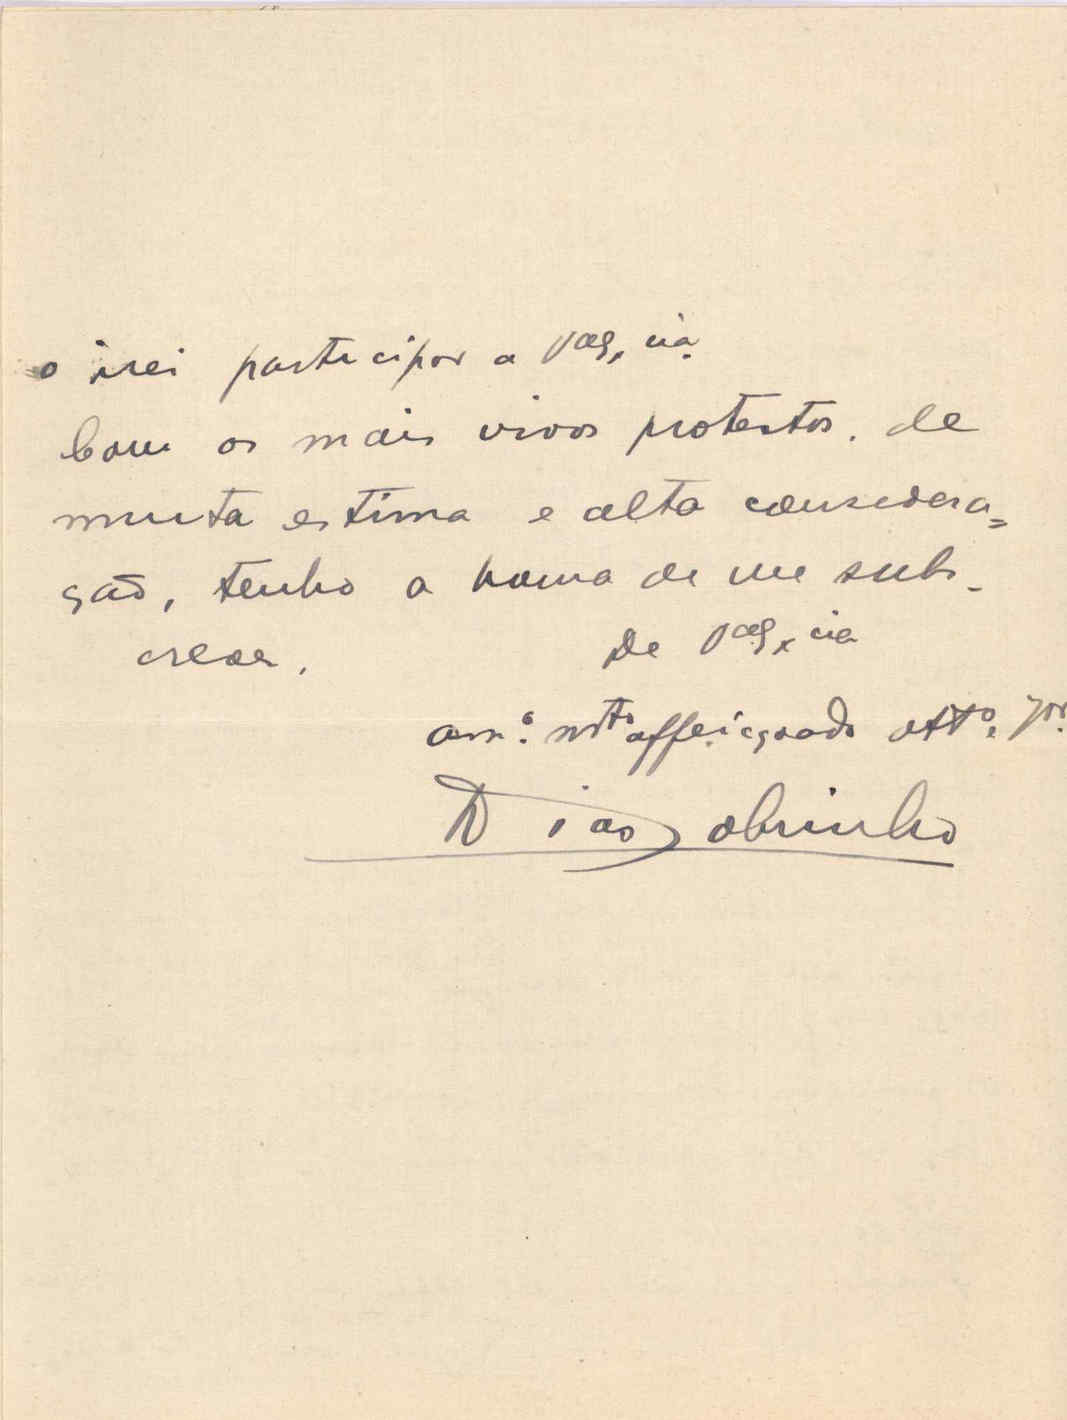 o irei participar a V Ex.cia
Com os mais vivos protestos, de
muita estima e alta considera=
ção, tenho a honra de me subs-
crever.
De V Ex.cia
am.º mtº affeiçoado attº.
Dias Sobrinho